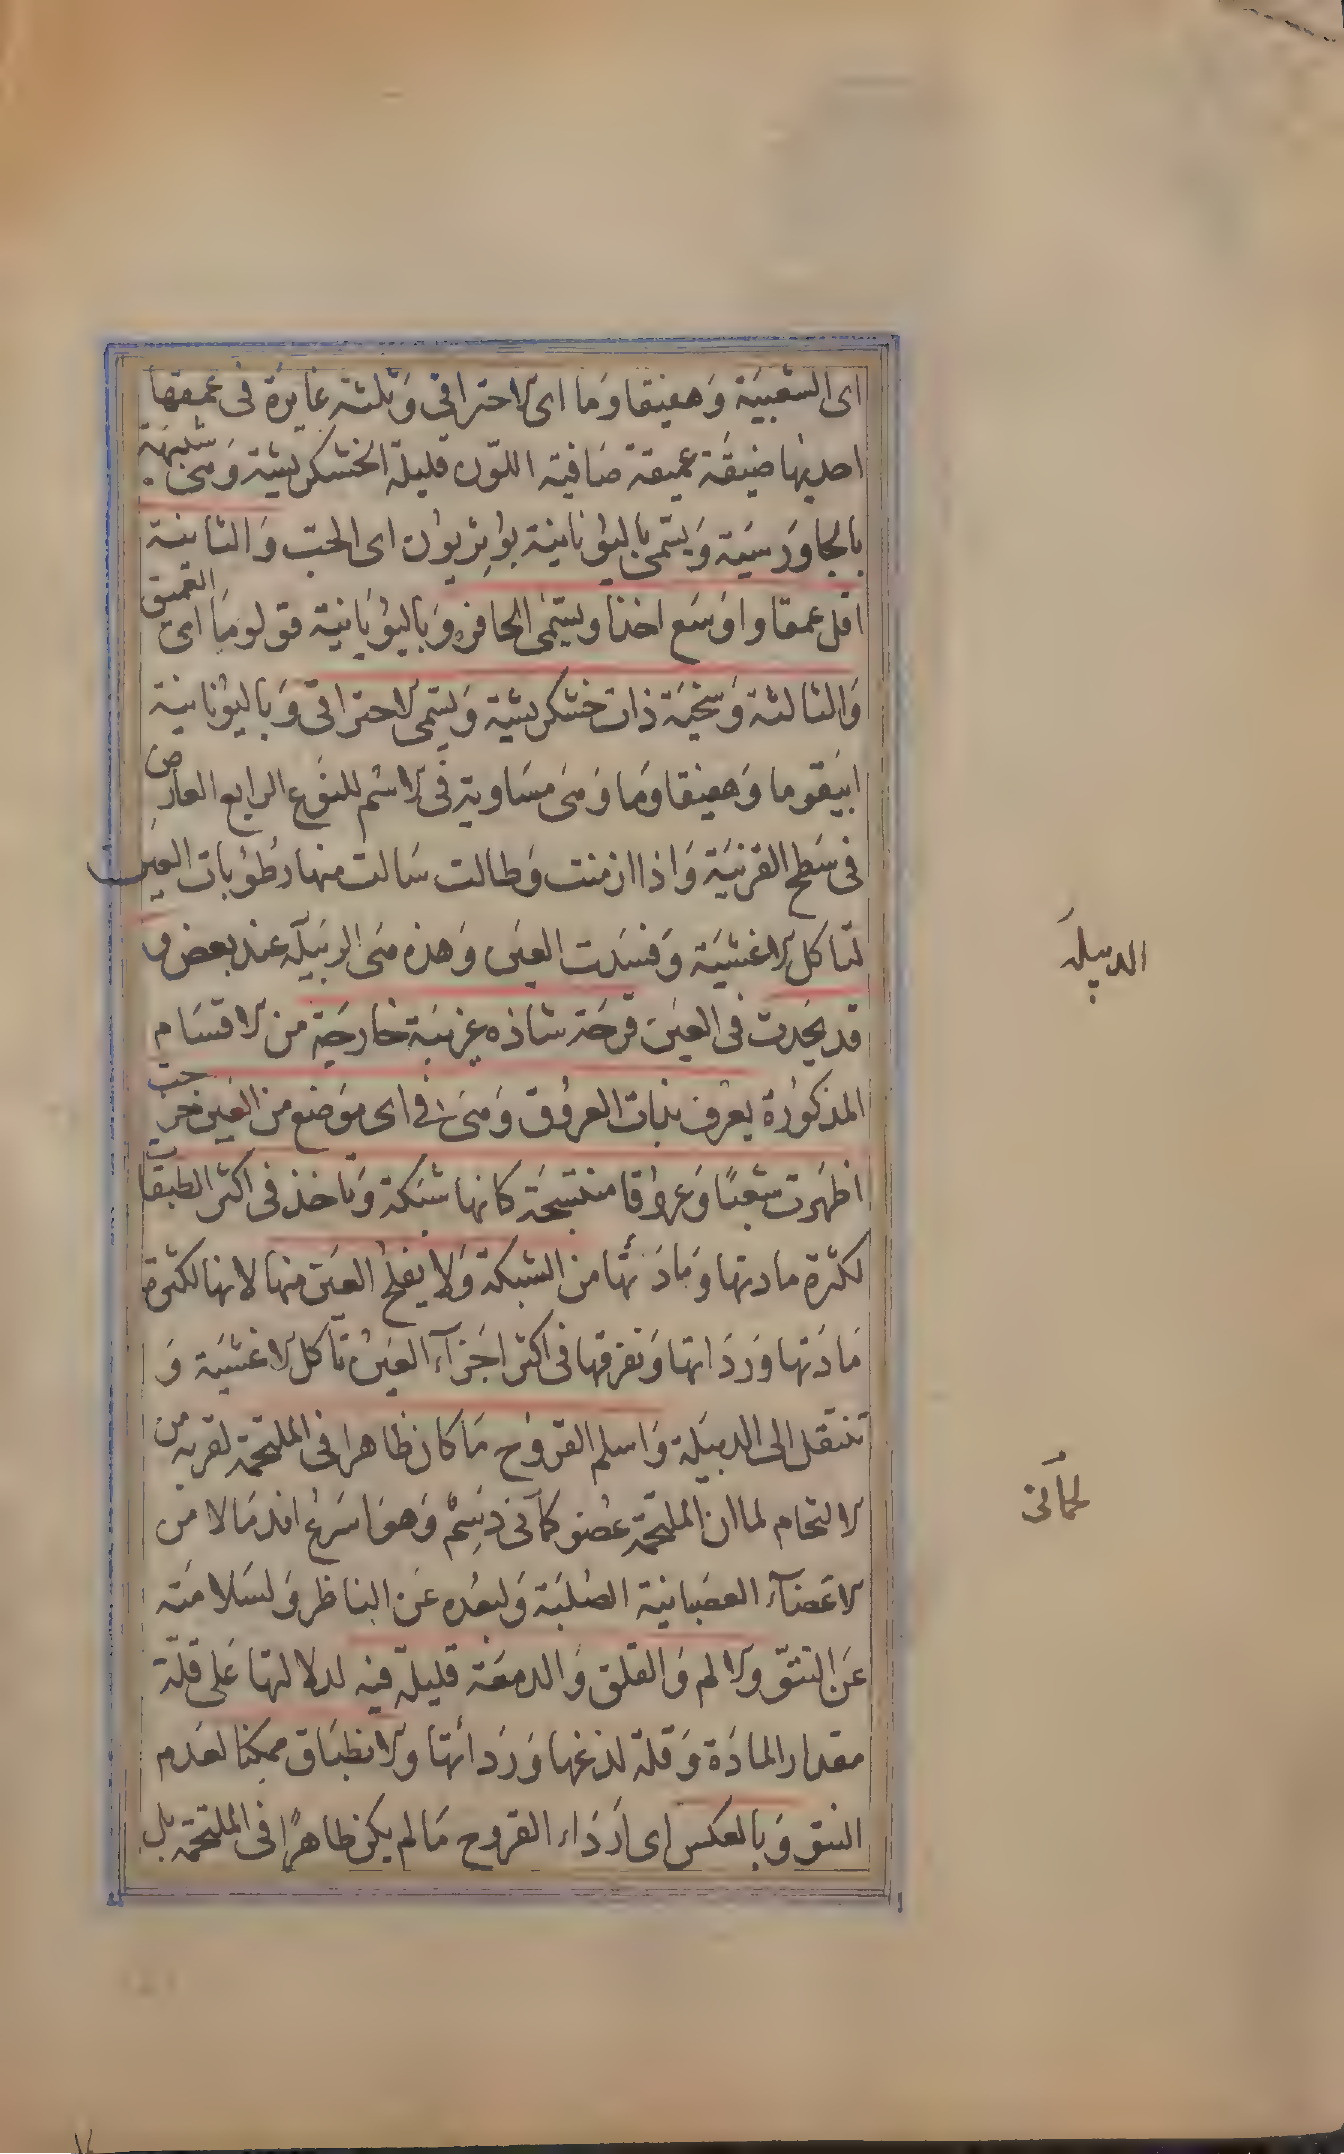 اى الشعبية وهفيقا وما اى الاحتراقى وثلثة غايرة فى عمقها
احديها ضيقة عميقة صافية اللون قليلة الخشكريشة وهى شبيهة
بالجاورسية ويسمى باليونانية بواثريون اى الحب والثانية
اقل عمقا واوسع اخذا ويسمى الحافر وباليونانية قولوما اى العميق
والثالثة وسخة ذات خشكريشة ويسمى الاحتراقى وباليونانية
ابيقوما وهفيقا وما وهى مساوية فى الاسم للنوع الرابع العارض
فى سطح القرنية واذا ازمنت وطالت سالت منها رطوبات العين
لتاكل الاغشية وفسدت العين وهذه هى الدبيلة عند بعض و
قد يحدث فى العين قرحة شاذه غريبة خارجة من الاقسام
المذكورة يعرف بذات العروق وهى فى اى موضع من العين خرجت
اظهرت شعبا وعروقا منتسجة كانها شبكة وتاخذ فى اكثر الطبقات
لكثرة مادتها ومادتها من الشبكة ولا يفلح العين منها لانها لكثرة
مادتها وردائتها وتفرقها فى اكثر اجزآء العين تآكل الاغشية و
تنتقل الى الدبيلة واسلم القروح ما كان ظاهرا فى الملتحمة لقربه من
الالتحام لما ان الملتحمة عضو لحمآنى دسم وهو اسرع اندمالا من
الاعضآء العصبانية الصلبة ولبعده عن الناظر ولسلامته
عن النتوّ والالم والقلق والدمعة قليلة فيه لدلالتها على قلّة
مقدار المادة وقلة لذعها وردائتها والانطباق ممكنا لعدم
النتو وبالعكس اى اردا القروح مالم يكن ظاهرا فى الملتحمة بل
الدبيلة
لحمآنى